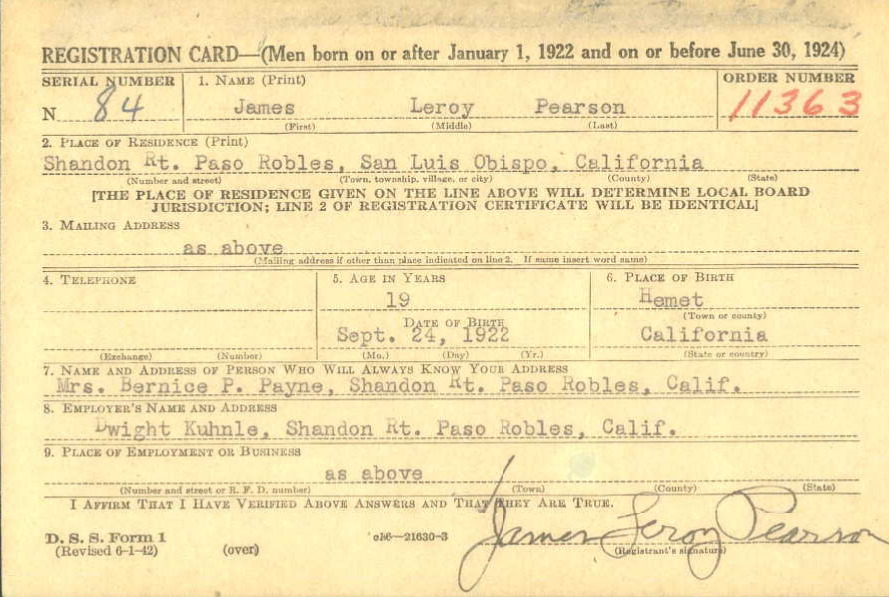 REGISTRATION CARD—(Men born on or after January 1, 1922 and on or before June 30, 1924)
SERIAL NUMBER 1. NAME (Print) ORDER NUMBER
N 84 James Leroy Pearson 11363
(First) (Middle) (Last)
2. PLACE OF RESIDENCE (Print)
Shandon Rt. Paso Robles, San Luis Obispo, California
(Number and street) (Town, township, village, or city) (County) (State)
[THE PLACE OF RESIDENCE GIVEN ON THE LINE ABOVE WILL DETERMINE LOCAL BOARD
JURISDICTION; LINE 2 OF REGISTRATION CERTIFICATE WILL BE IDENTICAL]
3. MAILING ADDRESS
as above
(Mailing address if other than place indicated on line 2. If same insert word same)
4. TELEPHONE 5. AGE IN YEARS 6. PLACE OF BIRTH
19 Hemet
(Town or county)
DATE OF BIRTH
Sept. 24, 1922 California
(Exchange) (Number) (Mo.) (Day) (Yr.) (State or country)
7. NAME AND ADDRESS OF PERSON WHO WILL ALWAYS KNOW YOUR ADDRESS
Mrs. Bernice P. Payne, Shandon Rt. Paso Robles, Calif.
8. EMPLOYER'S NAME AND ADDRESS
Dwight Kuhnle, Shandon Rt. Paso Robles, Calif.
9. PLACE OF EMPLOYMENT OR BUSINESS
as above
(Number and street or R. F. D. number) (Town) (County) (State)
I AFFIRM THAT I HAVE VERIFIED ABOVE ANSWERS AND THAT THEY ARE TRUE.
James Leroy Pearson
D. S. S. Form 1 16—21630-3
(Revised 6-1-42) (over) (Registrant's signature)